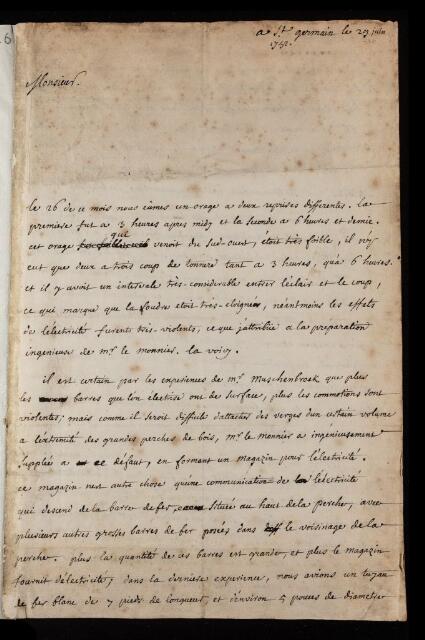 a St. germain le 29 juin
Monsieur.
le 26 de ce mois nous eûmes un orage a deux reprises differentes. la
premiere fut a 3 heures apres midy et la seconde a 6 heures et demie.
cet orage que venoit du sud-ouest, étoit très foible, il n'y
eut que deux a trois coup de tonnere tant a 3 heures, qu'a 6 heures.
et il y avoit un intervale très-considerable entrer l'éclair et le coup,
ce qui marque que la foudre étoit très-eloignée, néantmoins les effets
de lélectricité furents très-violents, ce que j'attribüe a la preparation
ingenieuse de mr. le monnier. la voicy.
il est certain par les experiences de mr. Muschenbroek que plus
les barres que lon électrise ont de surface, plus les commotions sont
violentes; mais comme il seroit difficile d'attacher des verges d'un certain volume
a l'extremité des grandes perches de bois, mr. le monnier a ingénieusement
supplée a ce défaut, en formant un magazin pour l'électricité.
ce magazin n'est autre chose qu'une communication de l'électricité
qui descend de la barre de fer, située au haut de la perche, avec
plusieurs autres grosses barres de fer posées dans le voisinage de la
perche. plus la quantité de ces barres est grande, et plus le magazin
fournit d'électricité; dans la derniere experience, nous avions un tuyau
de fer blanc de 7 pieds de longueur, et d'environ 5 pouces de diametre